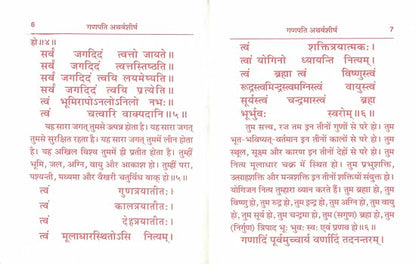 6
गणपति अथर्वशीर्ष
हो॥४॥
सर्वं जगदिदं त्वत्तो जायते॥
सर्वं जगदिदं त्वत्तस्तिष्ठति॥
सर्वं जगदिदं त्वयि लयमेष्यति॥
सर्वं जगदिदं त्वयि प्रत्येति॥
त्वं भूमिरापोऽनलोऽनिलो नभः॥
त्वं चत्वारि वाक्पदानि॥५॥
यह सारा जगत् तुमसे उत्पन्न होता है। यह सारा जगत्
तुमसे सुरक्षित रहता है। यह सारा जगत् तुममें लीन होता
है। यह अखिल विश्व तुममें ही प्रतीत होता है। तुम्हीं
भूमि, जल, अग्नि, वायु और आकाश हो। तुम्हीं परा,
पश्यन्ती, मध्यमा और वैखरी चतुर्विध वाक् हो॥५॥
त्वं गुणत्रयातीतः।
त्वं कालत्रयातीतः।
त्वं देहत्रयातीतः।
त्वं मूलाधारस्थितोऽसि नित्यम्।
गणपति अथर्वशीर्ष
7
त्वं शक्तित्रयात्मकः।
त्वां योगिनो ध्यायन्ति नित्यम्।
त्वं ब्रह्मा त्वं विष्णुस्त्वं
रुद्रस्त्वमिन्द्रस्त्वमग्निस्त्वं वायुस्त्वं
सूर्यस्त्वं चन्द्रमास्त्वं ब्रह्म
भूर्भुवः स्वरोम्॥६॥
तुम सत्त्व, रज तम इन तीनों गुणों से परे हो। तुम
भूत-भविष्यत्-वर्तमान इन तीनों कालों से परे हो। तुम
स्थूल, सूक्ष्म और कारण इन तीनों देहों से परे हो। तुम
नित्य मूलाधार चक्र में स्थित हो। तुम प्रभुशक्ति,
उत्साहशक्ति और मन्त्रशक्ति इन तीनों शक्तियों से संयुक्त हो।
योगिजन नित्य तुम्हारा ध्यान करते हैं। तुम ब्रह्मा हो, तुम
विष्णु हो, तुम रुद्र हो, तुम इन्द्र हो, तुम अग्नि हो, तुम वायु
हो, तुम सूर्य हो, तुम चन्द्रमा हो, तुम (सगुण) ब्रह्म हो, तुम
(निर्गुण) त्रिपाद भूः भुवः स्वः एवं प्रणव हो॥६॥
गणादिं पूर्वमुच्चार्य वर्णादिं तदनन्तरम्।